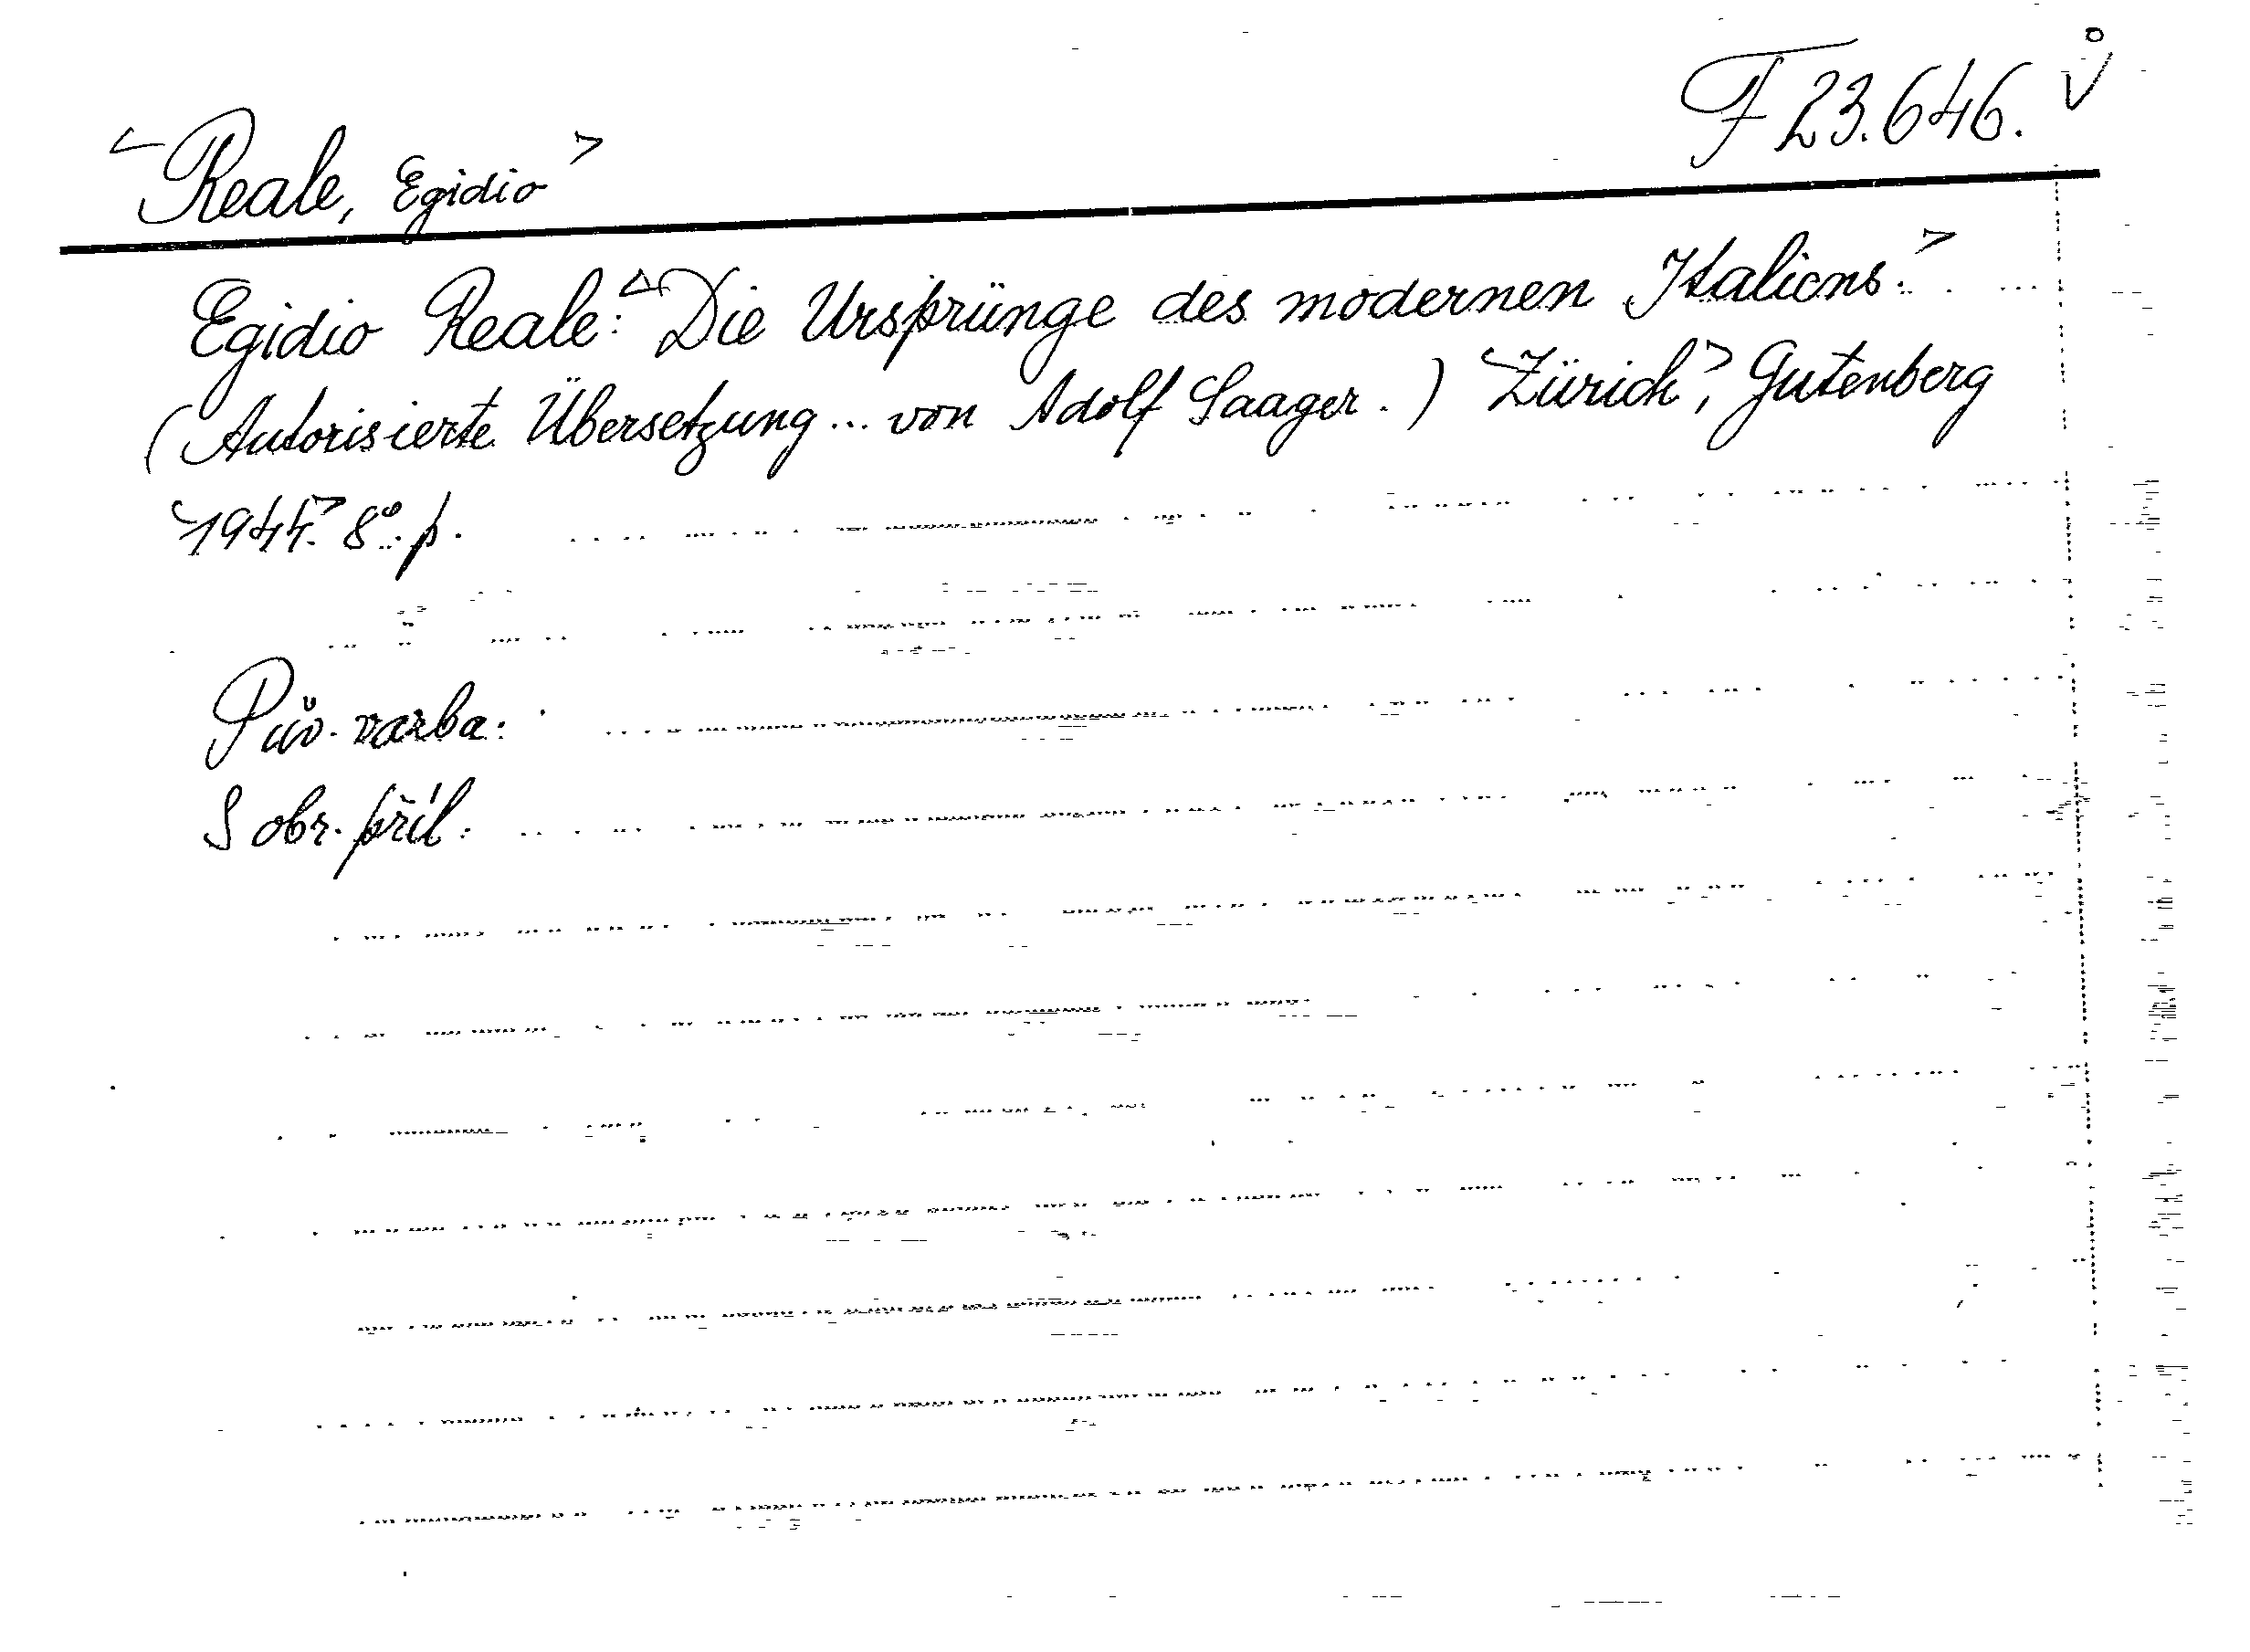 F 23.646.
<Reale, Egidio>
Egidio Reale: <Die Ursprünge des modernen Italiens.>
(Autorisierte Übersetzung... von Adolf Saager.) <Zürich>, Gutenberg
<1944.> 8°. p.
Pův. vazba.
S obr. příl.